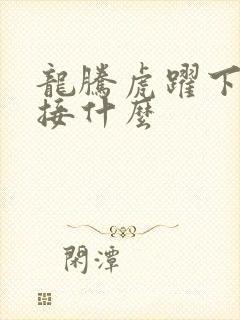 龍騰虎躍下
接什麼
閑潭